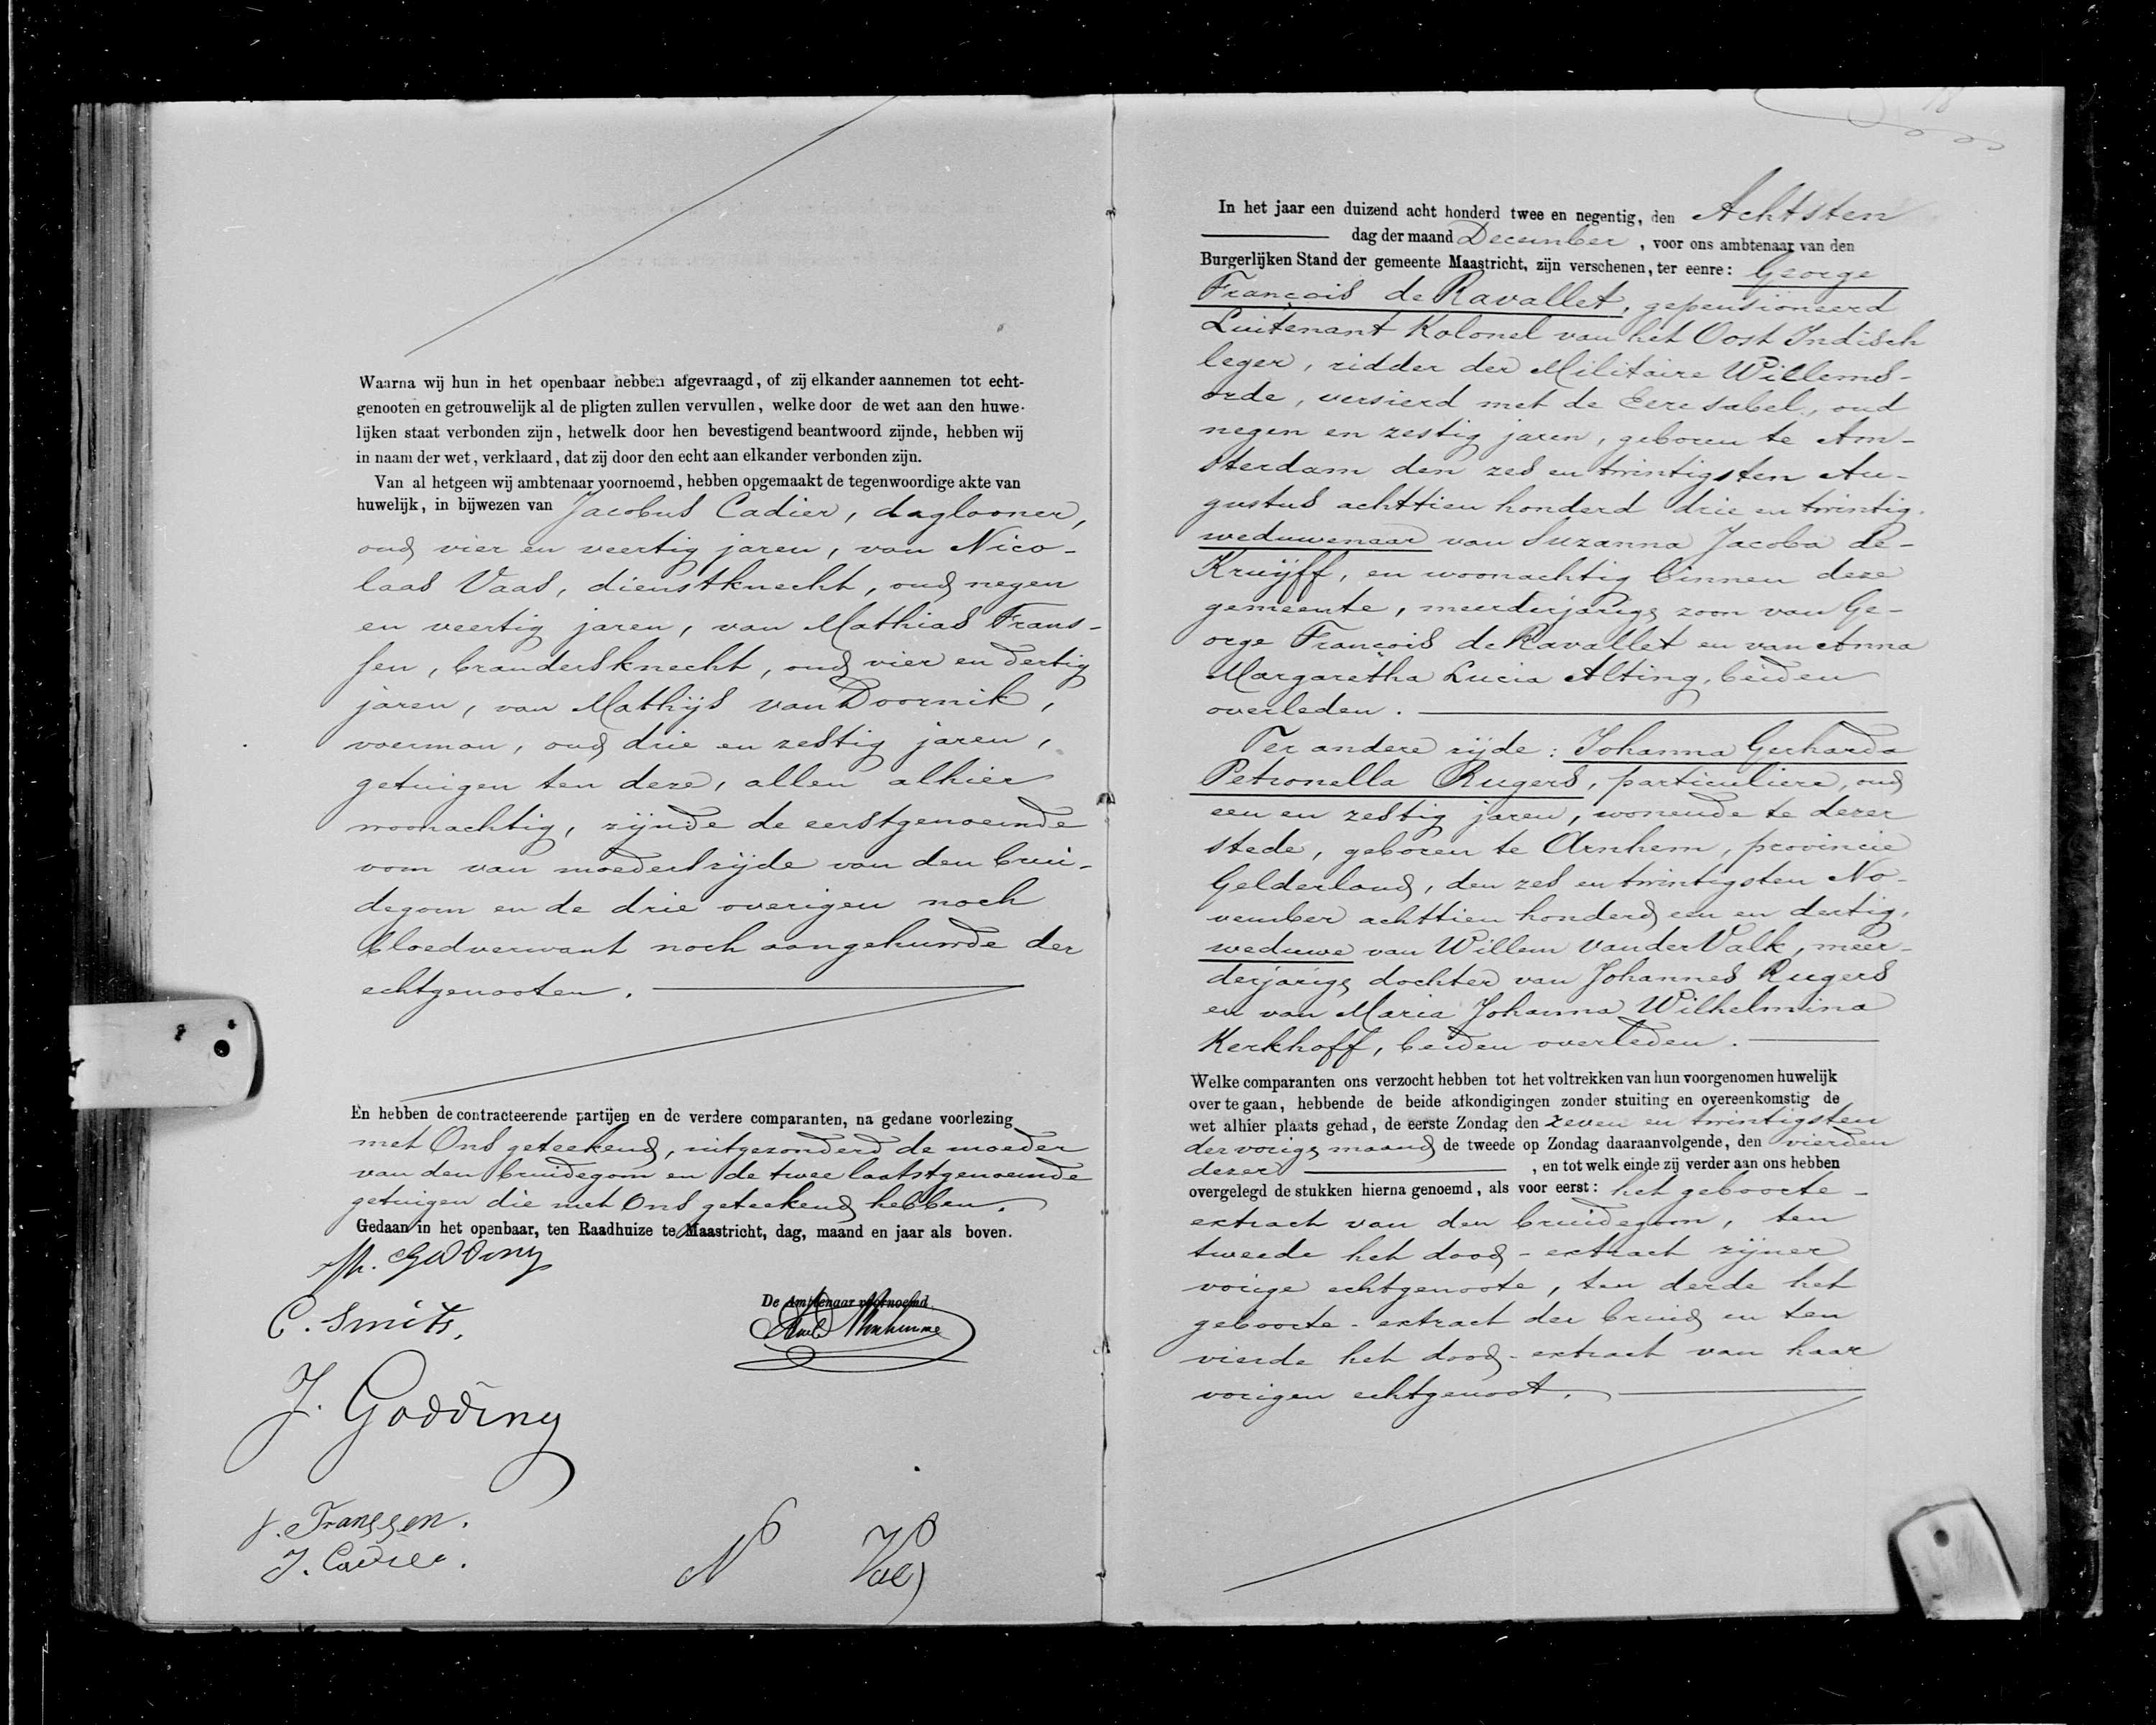 Waarna wij hun in het openbaar hebben afgevraagd, of zij elkander aannemen tot echt-
genooten en getrouwelijk al de pligten zullen vervullen, welke door de wet aan den huwe-
lijken staat verbonden zijn, hetwelk door hen bevestigend beantwoord zijnde, hebben wij
in naam der wet, verklaard, dat zij door den echt aan elkander verbonden zijn.
Van al hetgeen wij ambtenaar voornoemd, hebben opgemaakt de tegenwoordige akte van
huwelijk, in bijwezen van Jacobus Cadier, daglooner,
oud vier en veertig jaren, van Nico-
laas Vaas, dienstknecht, oud negen
en veertig jaren, van Mathias Frans-
sen, brandersknecht, oud vier en dertig
jaren, van Mathijs van Doornik,
voerman, oud drie en zestig jaren,
getuigen ten deze, allen alhier
woonachtig, zijnde de eerstgenoemde
oom van moederszijde van den brui-
degom en de drie overigen noch
bloedverwant noch aangehuwde der
echtgenooten.
En hebben de contracteerende partijen en de verdere comparanten, na gedane voorlezing
met Ons geteekend, uitgezonderd de moeder
van den bruidegom en de twee laatstgenoemde
getuigen die met Ons geteekend hebben.
Gedaan in het openbaar, ten Raadhuize te Maastricht, dag, maand en jaar als boven.
M. Godding
De Ambtenaar voornoemd
C. Smits.
J. Godding
J. Franssen.
J. Cadier.
N Vas
In het jaar een duizend acht honderd twee en negentig, den Achtsten
dag der maand December, voor ons ambtenaar van den
Burgerlijken Stand der gemeente Maastricht, zijn verschenen, ter eenre: George
François de Ravallet, gepensioneerd
Luitenant Kolonel van het Oost Indisch
leger, ridder der Militaire Willems-
orde, versierd met de Eere sabel, oud
negen en zestig jaren, geboren te Am-
sterdam den zes en twintigsten Au-
gustus achttien honderd drie en twintig,
weduwenaar van Suzanna Jacoba de-
Kruijff, en woonachtig binnen deze
gemeente, meerderjarige zoon van Ge-
orge François de Ravallet en van Anna
Margaretha Lucia Alting, beiden
overleden.
Ter andere zijde: Johanna Gerharda
Petronella Rugers, particuliere, oud
een en zestig jaren, wonende te dezer
stede, geboren te Arnhem, provincie
Gelderland, den zes en twintigsten No-
vember achttien honderd een en dertig,
weduwe van Willem van der Valk, meer-
derjarige dochter van Johannes Rugers
en van Maria Johanna Wilhelmina
Kerkhoff, beiden overleden.
Welke comparanten ons verzocht hebben tot het voltrekken van hun voorgenomen huwelijk
over te gaan, hebbende de beide afkondigingen zonder stuiting en overeenkomstig de
wet alhier plaats gehad, de eerste Zondag den zeven en twintigsten
der vorige maand de tweede op Zondag daaraanvolgende, den vierden
dezer, en tot welk einde zij verder aan ons hebben
overgelegd de stukken hierna genoemd, als voor eerst: het geboorte-
extract van den bruidegom, ten
tweede het dood-extract zijner
vorige echtgenoote, ten derde het
geboorte-extract der bruid en ten
vierde het dood-extract van haar
vorigen echtgenoot.